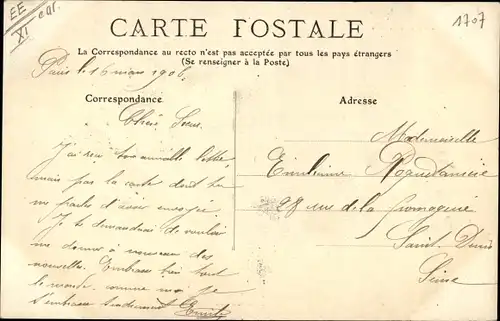 EE
XI car.
1707
CARTE POSTALE
La Correspondance au recto n'est pas acceptée par tous les pays étrangers
(Se renseigner à la Poste)
Paris le 16 mars 1906
Correspondance
Chère Soeur
J'ai reçu ton aimable lettre
mais pas la carte dont tu
me parle d'avoir envoyé.
Je te demanderai de vouloir
me donner à nouveau des
nouvelles. Embrasse bien tout
le monde comme moi je
t'embrasse tendrement Emile
Adresse
Mademoiselle
Emilienne
28 rue de la fromagerie
Saint Denis
Seine